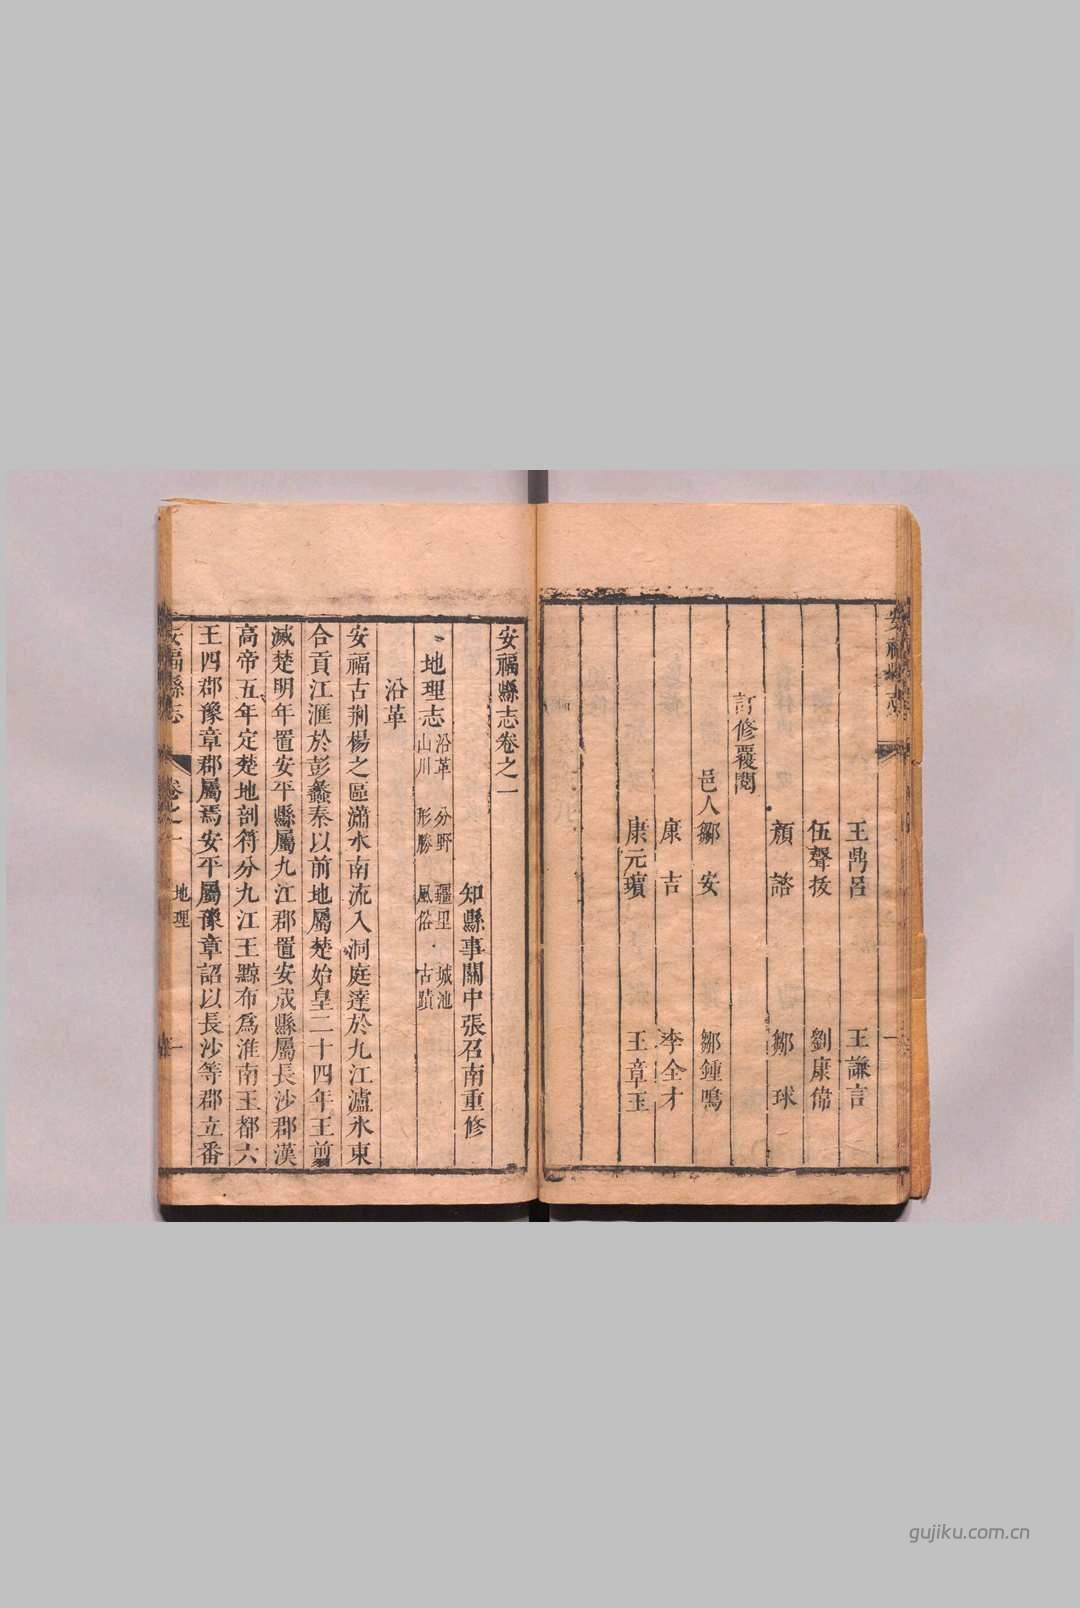 安福縣志
一
王鼎呂　王謙言
伍聲拔　劉康節
顏諮　鄒球
訂修覆閱
邑人鄒安　鄒鍾鳴
康吉　李全才
康元瓆　王章玉
安福縣志卷之一
知縣事關中張召南重修
地理志 沿革 分野 疆里 城池
山川 形勝 風俗 古蹟
沿革
安福古荆楊之區瀟水南流入洞庭達於九江瀘水東
合貢江滙於彭蠡秦以前地屬楚始皇二十四年王翦
滅楚明年置安平縣屬九江郡置安成縣屬長沙郡漢
高帝五年定楚地剖符分九江王黥布爲淮南王都六
王四郡豫章郡屬焉安平屬豫章詔以長沙等郡立番
安福縣志 卷之一 地理 一
gujiku.com.cn